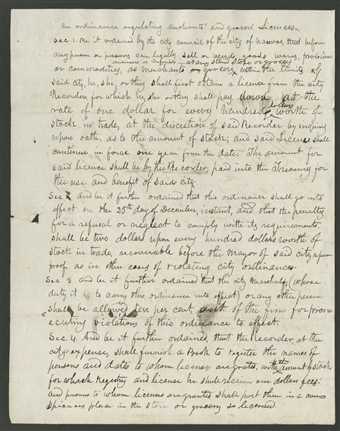 an ordinance regulating merchants' and grocers' Licences.
Sec 1. Be it ordained by the city council of the city of Nauvoo, that before
any person or persons can legally sell or vend goods wares, provisions
or commodities, as merchants or grocers, within the limits of
said city, he, she, or they shall first obtain a licence from the city
Recorder, for which he, she or they shall pay down at the
rate of one dollar for every hundred dollars worth of
stock in trade, at the discretion of said Recorder by enquiry
upon oath, as to the amount of stock; and said License shall
continue in force one year from the date: The amount for
said license shall be by the Recorder, paid into the Treasury for
the use and benefit of said city
Sec 2 And be it further ordained that this ordinance shall go into
effect on the 25th day of December, instant, and that the penalty
for a refusal or neglect to comply with its requirements
shall be two dollars upon every hundred dollars worth of
stock in trade, recoverable before the Mayor of said city, upon
proof as in other cases of violating city ordinances.
Sec 3 and be it further ordained that the city Marshal, (whose
duty it is to carry this ordinance into effect) or any other person
shall be allowed ten per cent, out of the fine for prose
cuting violations of this ordinance to effect.
Sec 4 And be it further ordained, that the Recorder, at the
city's expense, shall furnish a Book to register the names of
persons and dates to whom licenses are granted, with the amount of stock
for which registry and license he shall receive one dollar fees:
and persons to whom licenses are granted shall post them in a con
spicuous place in the store or grocery so licensed